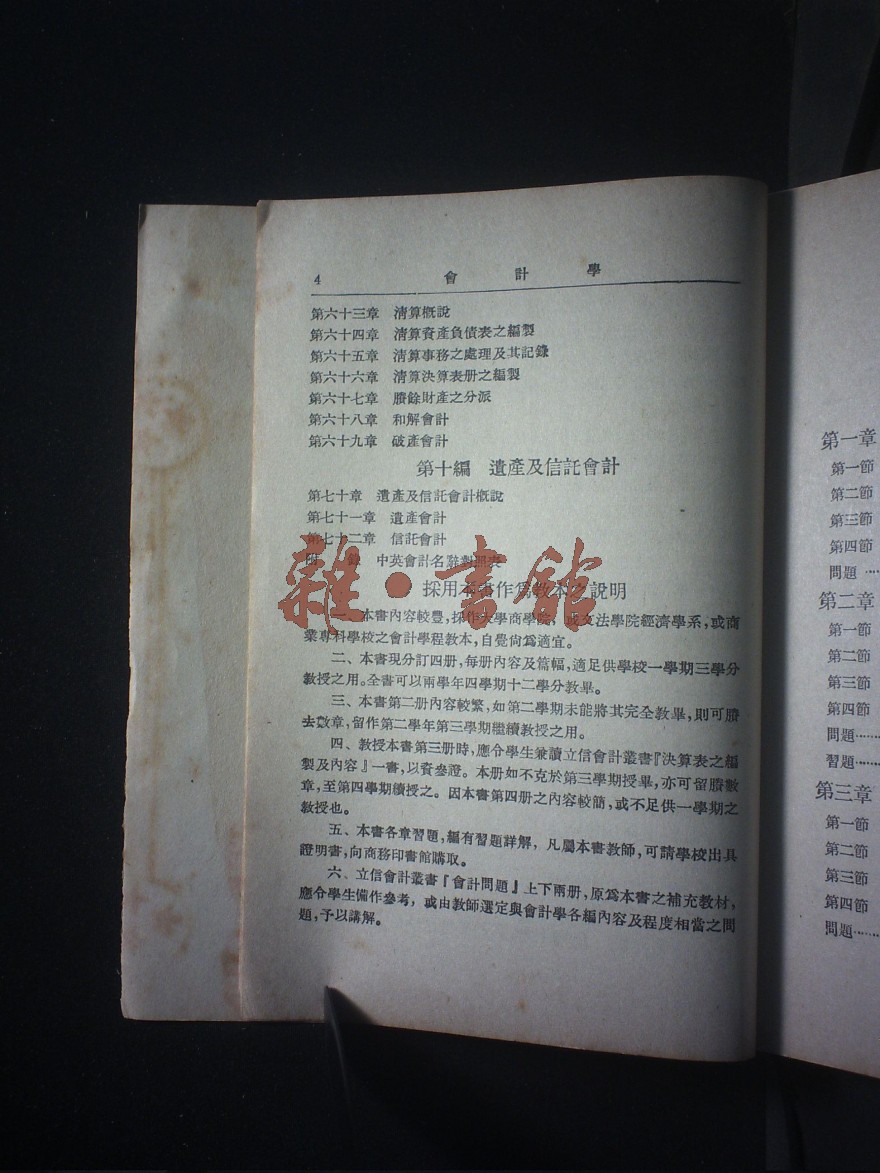 4 會計學
第六十三章 清算概說
第六十四章 清算資產負債表之編製
第六十五章 清算事務之處理及其記錄
第六十六章 清算決算表册之編製
第六十七章 賸餘財產之分派
第六十八章 和解會計
第六十九章 破產會計
第十編 遺產及信託會計
第七十章 遺產及信託會計概說
第七十一章 遺產會計
第七十二章 信託會計
附錄 中英會計名辭對照表
雜·書館
採用本書作爲教本之說明
一、本書內容較豐，採作大學商學院，或文法學院經濟學系，或商
業專科學校之會計學程教本，自覺尙爲適宜。
二、本書現分訂四册，每册內容及篇幅，適足供學校一學期三學分
教授之用。全書可以兩學年四學期十二學分教畢。
三、本書第二册內容較繁，如第二學期未能將其完全教畢，則可賸
去數章，留作第二學年第三學期繼續教授之用。
四、教授本書第三册時，應令學生兼讀立信會計叢書『決算表之編
製及內容』一書，以資參證。本册如不克於第三學期授畢，亦可留賸數
章，至第四學期續授之。因本書第四册之內容較簡，或不足供一學期之
教授也。
五、本書各章習題，編有習題詳解，凡屬本書教師，可請學校出具
證明書，向商務印書館購取。
六、立信會計叢書『會計問題』上下兩册，原爲本書之補充教材，
應令學生備作參考，或由教師選定與會計學各編內容及程度相當之問
題，予以講解。
第一章
第一節
第二節
第三節
第四節
問題……
第二章
第一節
第二節
第三節
第四節
問題……
習題……
第三章
第一節
第二節
第三節
第四節
問題……